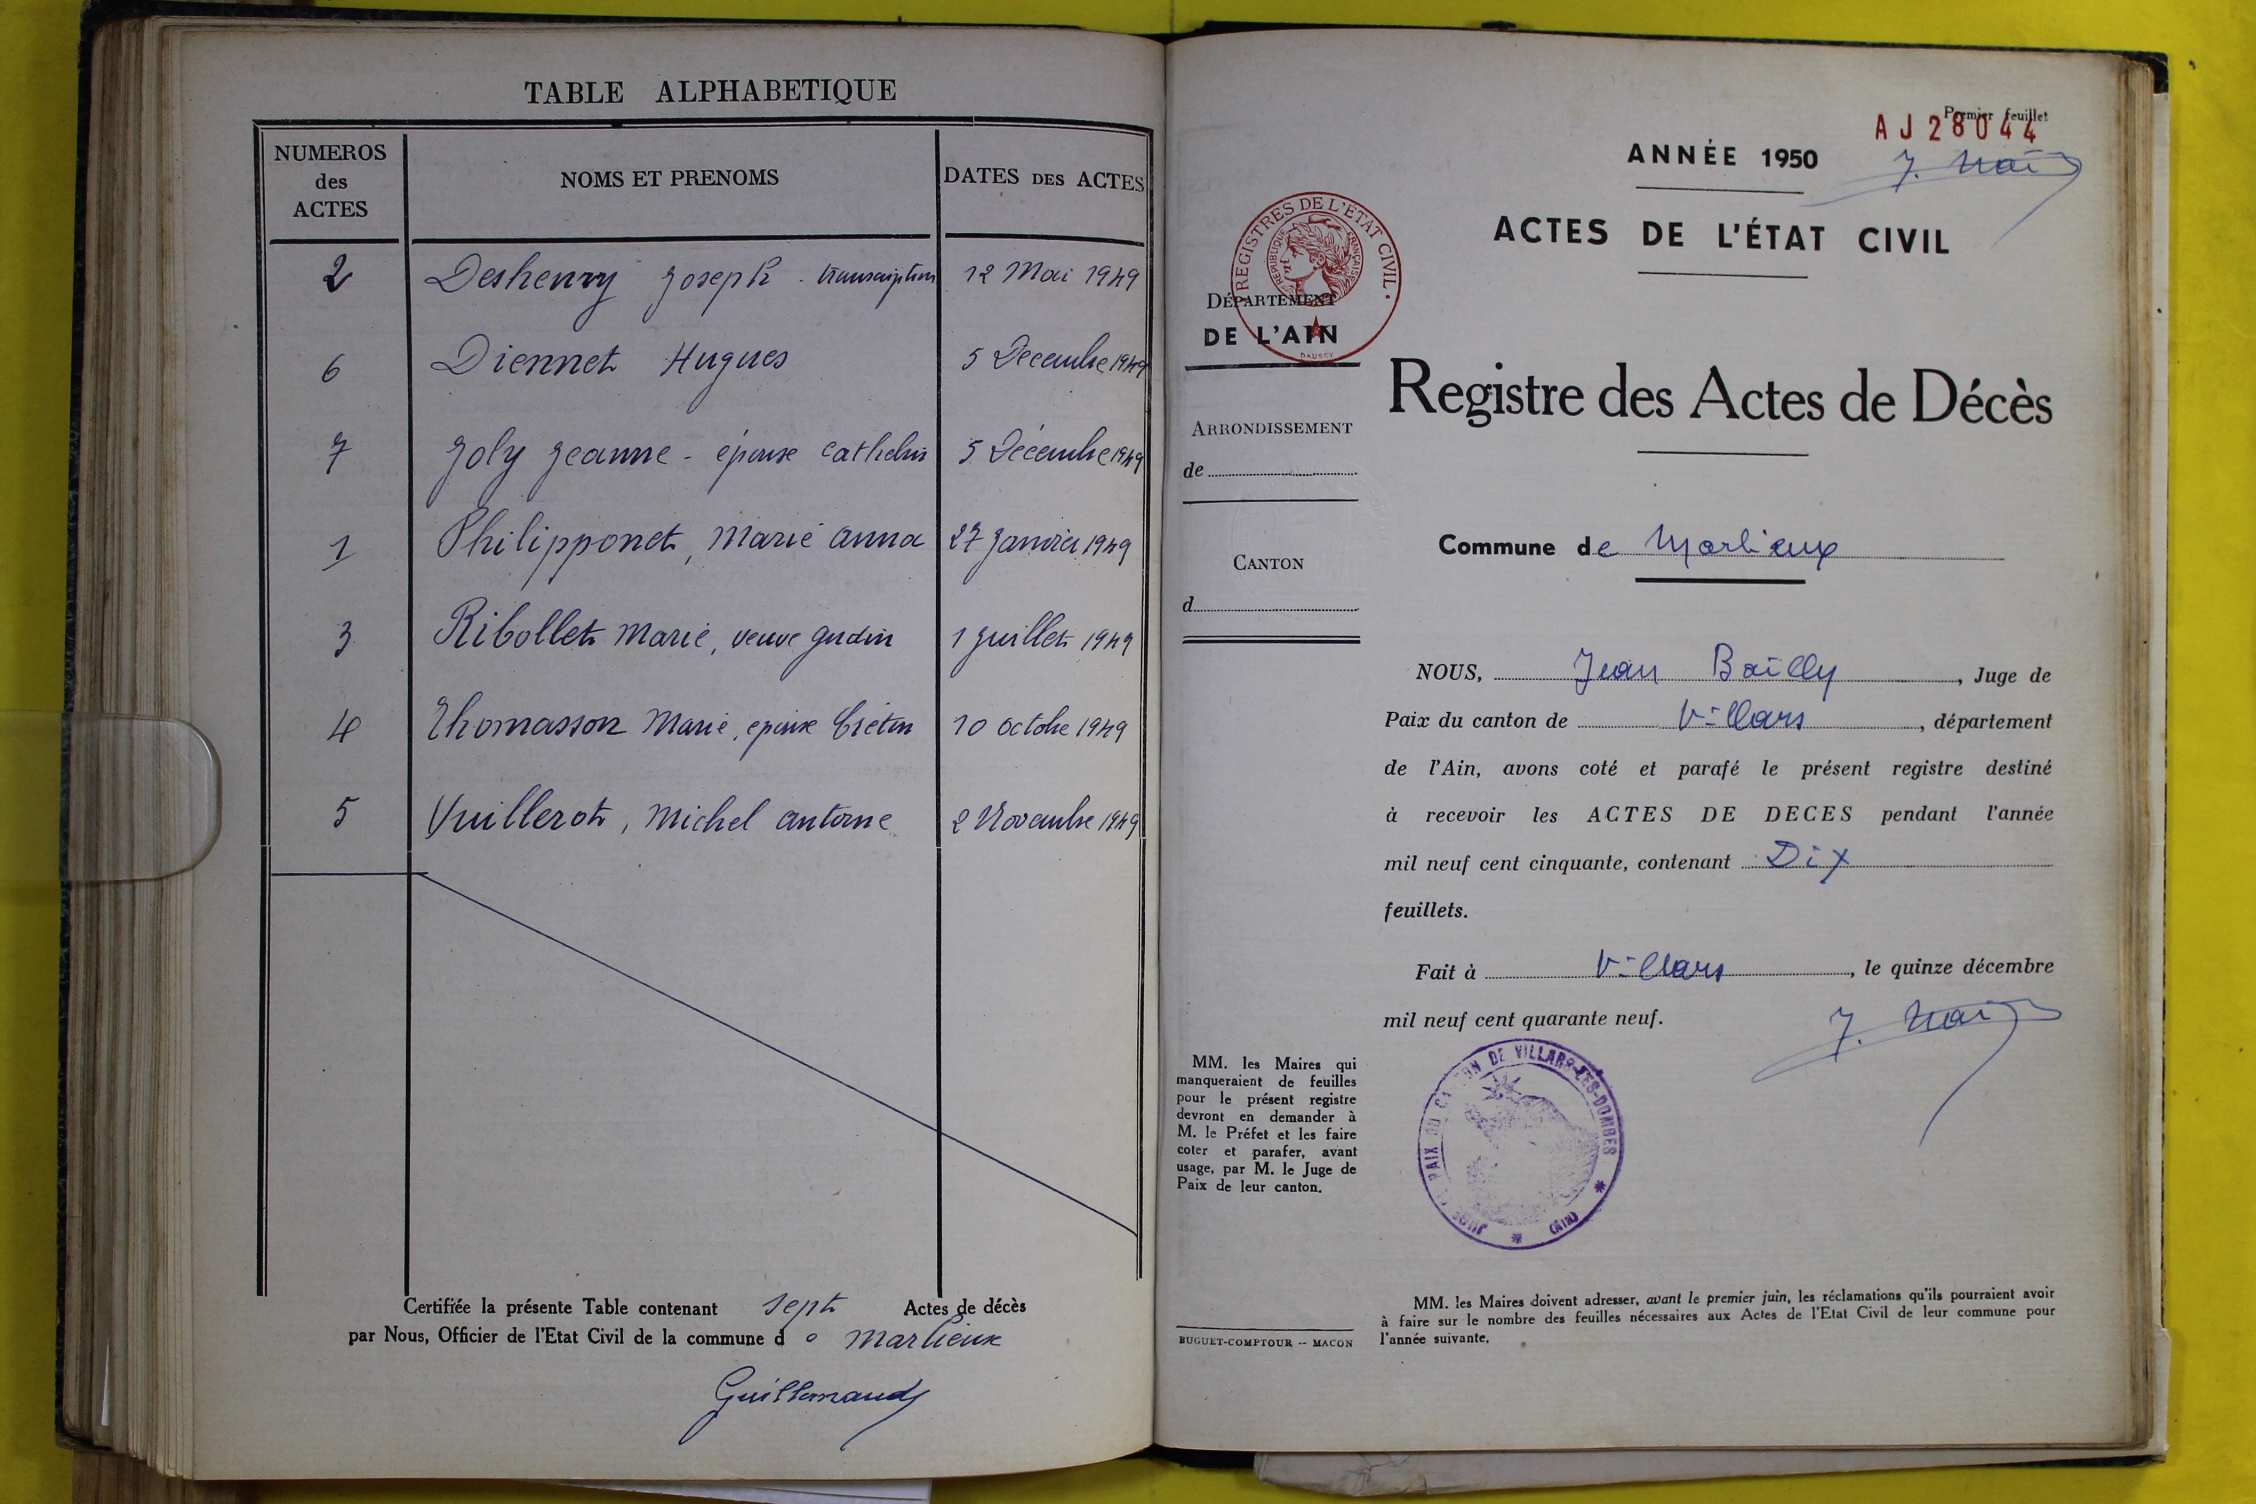 TABLE ALPHABETIQUE
NUMEROS des ACTES
NOMS ET PRENOMS
DATES DES ACTES
2 Deshenry Joseph - transcription 12 Mai 1949
6 Diennet Hugues 5 Decembre 1949
7 Joly Jeanne - épouse Cathelin 5 Décembre 1949
1 Philipponet, Marie Anna 27 Janvier 1949
3 Ribollet Marie, veuve Gudin 1 Juillet 1949
4 Thomasson Marie, epouse Crétin 10 Octobre 1949
5 Vuillerot, Michel Antoine 2 Novembre 1949
Certifiée la présente Table contenant sept Actes de décès
par Nous, Officier de l'Etat Civil de la commune d e Marlieux
Guillemaud
Premier feuillet
AJ28044
ANNÉE 1950
ACTES DE L'ÉTAT CIVIL
REGISTRES DE L'ÉTAT CIVIL
RÉPUBLIQUE FRANÇAISE
DAUSSY
DÉPARTEMENT
DE L'AIN
Registre des Actes de Décès
ARRONDISSEMENT
de
CANTON
d
Commune de Marlieux
NOUS, Jean Bailly, Juge de
Paix du canton de Villars, département
de l'Ain, avons coté et parafé le présent registre destiné
à recevoir les ACTES DE DECES pendant l'année
mil neuf cent cinquante, contenant Dix
feuillets.
Fait à Villars, le quinze décembre
mil neuf cent quarante neuf.
PAIX DU CANTON DE VILLARS-LES-DOMBES
(AIN)
MM. les Maires qui
manqueraient de feuilles
pour le présent registre
devront en demander à
M. le Préfet et les faire
coter et parafer, avant
usage, par M. le Juge de
Paix de leur canton.
BUGUET-COMPTOUR -- MACON
MM. les Maires doivent adresser, avant le premier juin, les réclamations qu'ils pourraient avoir
à faire sur le nombre des feuilles nécessaires aux Actes de l'Etat Civil de leur commune pour
l'année suivante.